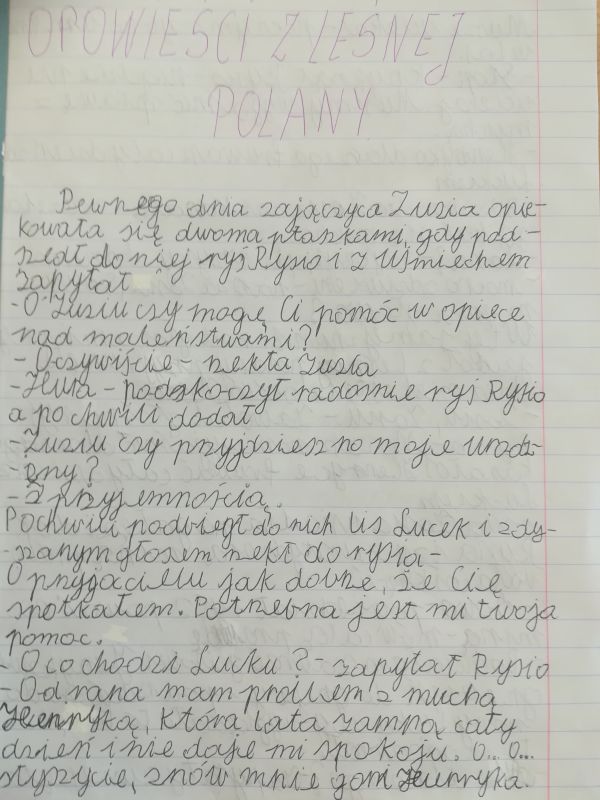 OPOWIEŚCI Z LEŚNEJ
POLANY
Pewnego dnia zajączyca Zuzia opie-
kowała się dwoma ptaszkami, gdy pod-
szedł do niej ryś Rysio i z uśmiechem
zapytał
- O Zuziu czy mogę Ci pomóc w opiece
nad maleństwami?
- Oczywiście - rzekła Zuzia
- Hura - podskoczył radośnie ryś Rysio
a po chwili dodał
- Zuziu czy przyjdziesz no moje urodz-
- iny?
- Z przyjemnością.
Pochwili podbiegł do nich lis Lucek i zdy-
- szanym głosem rzekł do rysia -
O przyjacielu jak dobrze, że Cię
spotkałem. Potrzebna jest mi twoja
pomoc.
- O co chodzi Lucku? - zapytał Rysio
- Od rana mam problem z muchą
Henryką, która lata zamną cały
dzień i nie daje mi spokoju. O... O...
słyszycie, znów mnie goni Henryka.